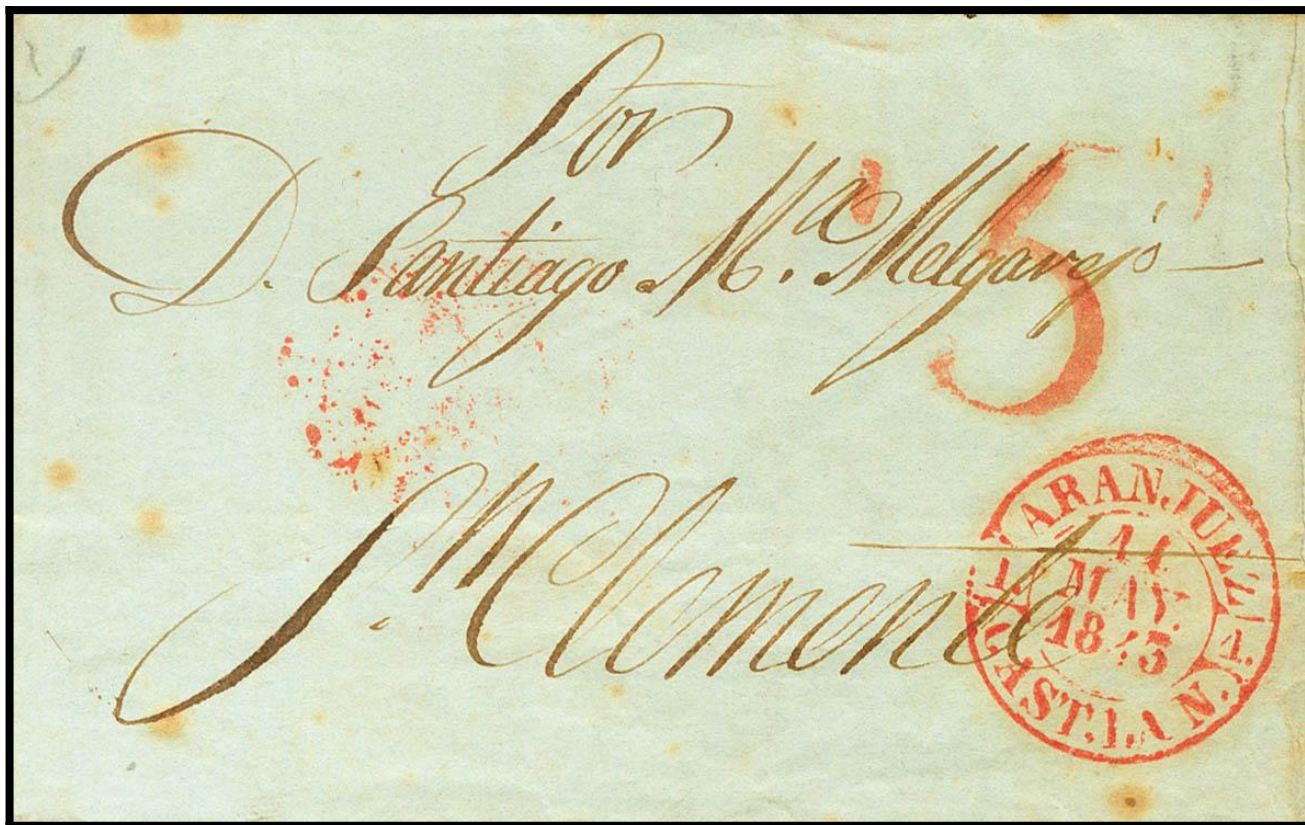 Sor
D. Santiago Mª. Melgarejo
5
S.n Clemente
ARANJUEZ
11
MAY.
CAST. LA N.